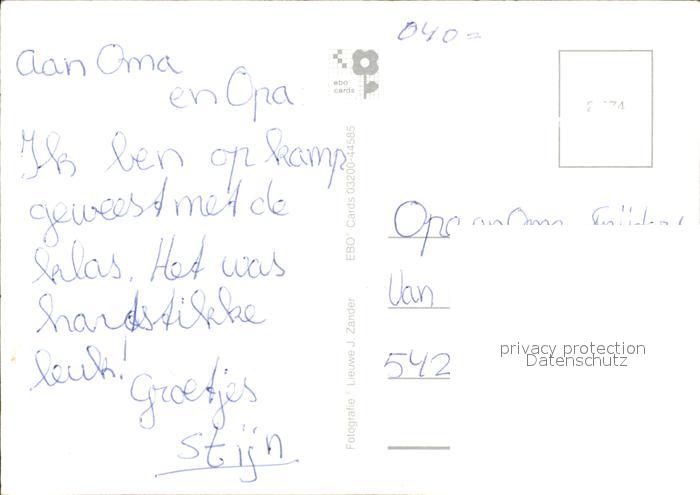 Aan Oma
en Opa
Ik ben op kamp
geweest met de
klas. Het was
hardstikke
leuk!
Groetjes
Stijn
ebo
cards
EBO Cards 03200-44585
Fotografie Lieuwe J. Zander
040=
Opa en Oma
Van
542
privacy protection
Datenschutz